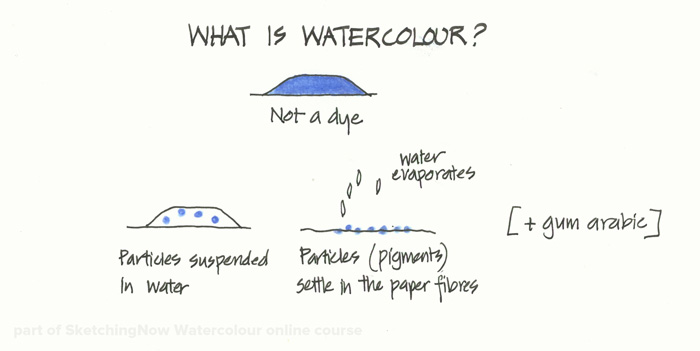 WHAT IS WATERCOLOUR?
Not a dye
water
evaporates
[+ gum arabic]
Particles suspended
in water
Particles (pigments)
settle in the paper fibres
part of SketchingNow Watercolour online course